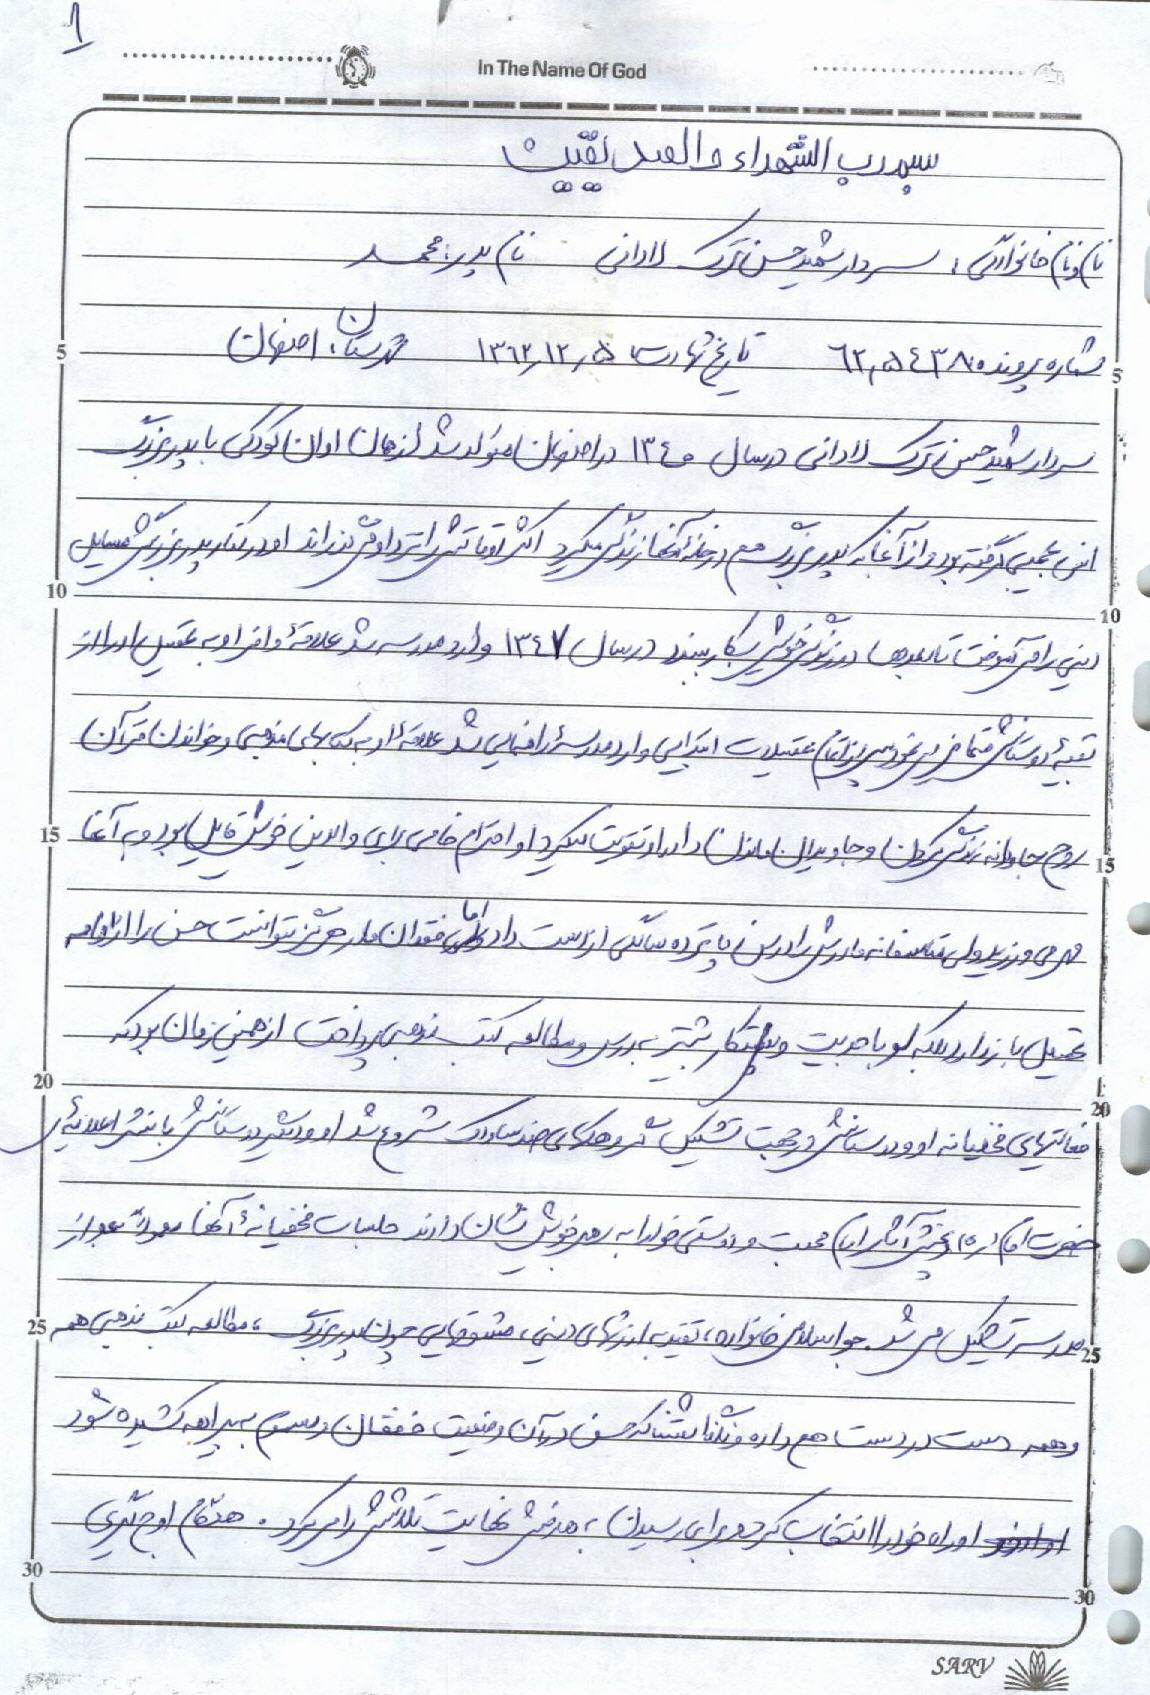 ۱
In The Name Of God
بسم رب الشهداء والصدیقین
نام و نام خانوادگی: سردار شهید حسن ترک لادانی نام پدر: محمد
شماره پرونده ۶۲۰۵۴۳۸۰ تاریخ شهادت ۱۳۶۲٫۱۲٫۵ شهرستان: اصفهان
سردار شهید حسن ترک لادانی در سال ۱۳۴۰ در اصفهان متولد شد از همان اوان کودکی با پدر بزرگ
انس عجیبی گرفته بود و از آنجا که پدر بزرگ هم در خانه آنها زندگی میکرد اکثر اوقاتش را نزد او می گذراند او در کنار پدر بزرگش مسایل
دینی را می آموخت تا بعدها در زندگی خویش بکار ببندد در سال ۱۳۴۷ وارد مدرسه شد علاقهٔ وافر او به تحصیل او را از
بقیهٔ دوستانش متمایز می نمود پس از اتمام تحصیلات ابتدایی وارد مدرسهٔ راهنمایی شد علاقهٔ او به کتابهای مذهبی و خواندن قرآن
روح جاودانه زندگی کردن و جاویدان ماندن را در او تقویت میکرد او احترام خاصی برای والدین خویش قایل بود و به آنها
مهر می ورزید ولی متاسفانه مادرش را در سن پانزده سالگی از دست داد اما فقدان مادر هرگز نتوانست حسن را از ادامه
تحصیل باز دارد بلکه او با جدیت و پشتکار بیشتر به درس و مطالعه کتب مذهبی پرداخت از همین زمان بود که
فعالیتهای مخفیانه او و دوستانش در جهت تشکیل گروهکهای ضد ساواک شروع شد او و دیگر دوستانش با نشر اعلامیه‌ی
حضرت امام (ره) و پخش آثار امام محبت و دوستی خود را به رهبر خویش نشان دادند جلسات مخفیانهٔ آنها بعد از
مدرسه تشکیل می شد. جو اسلامی خانواده، تقید به ارزشهای دینی، مشوقهایی چون پدر بزرگ، مطالعه کتب مذهبی همه
و همه دست در دست هم داده و نگذاشتند که حسن در آن وضعیت خفقان و ستم به بیراهه کشیده شود
او راه خود را انتخاب کرد و برای رسیدن به هدفش نهایت تلاشش را میکرد. هنگام اوج گیری
SARV